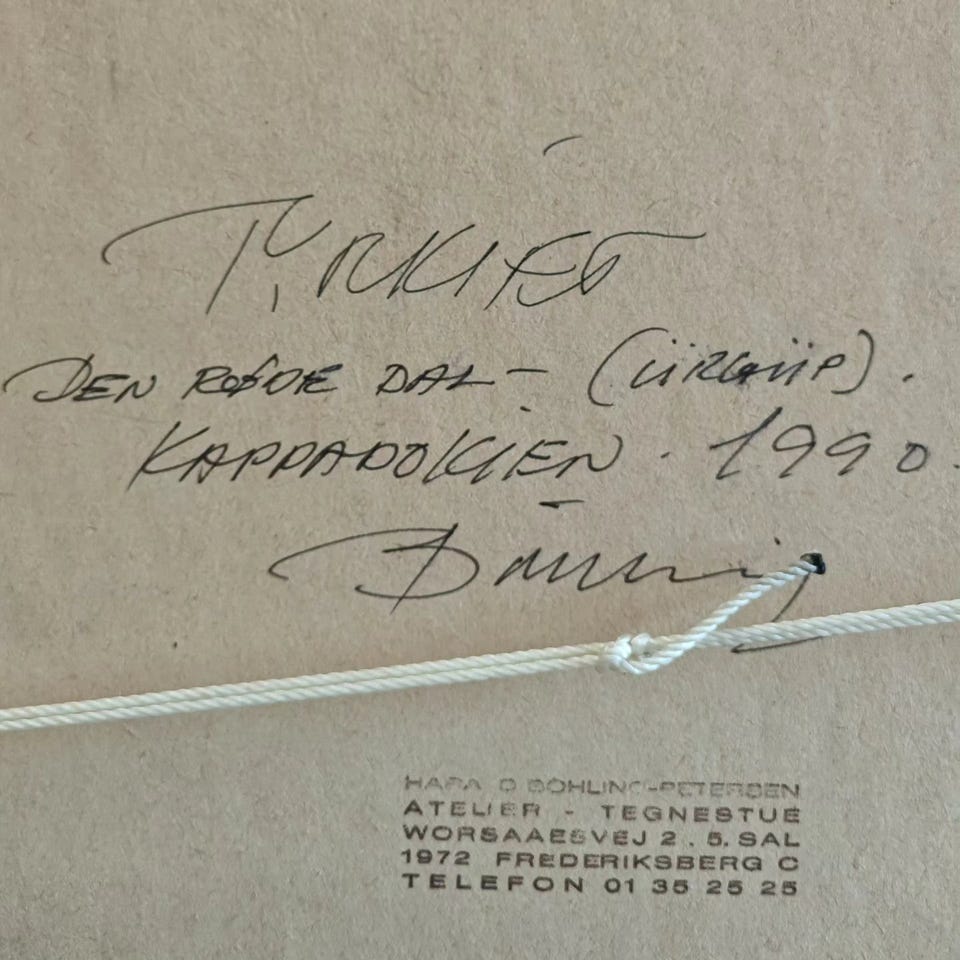 TYRKIET
DEN RØDE DAL - (ÜRGÜP).
KAPPADOKIEN. 1990.
HARALD BÖHLING-PETERSEN
ATELIER - TEGNESTUE
WORSAAESVEJ 2 . 5. SAL
1972 FREDERIKSBERG C
TELEFON 01 35 25 25